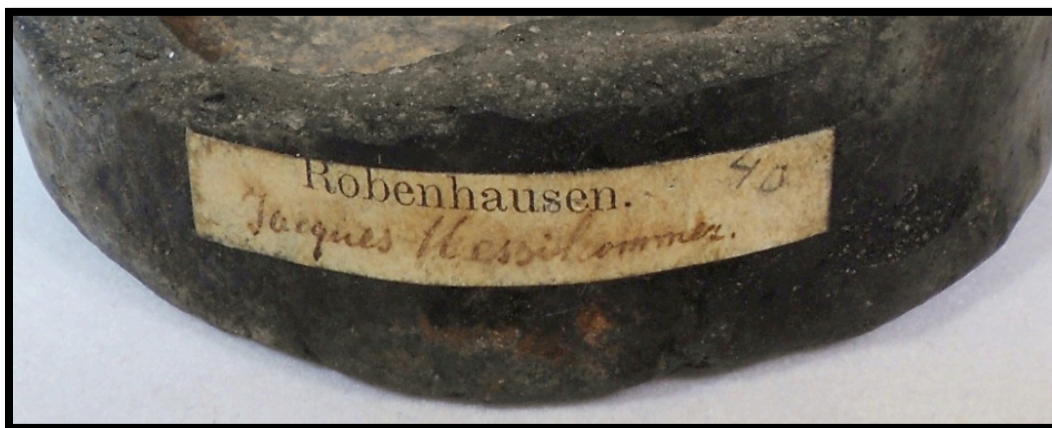 Robenhausen. 40
Jacques Messikommer.